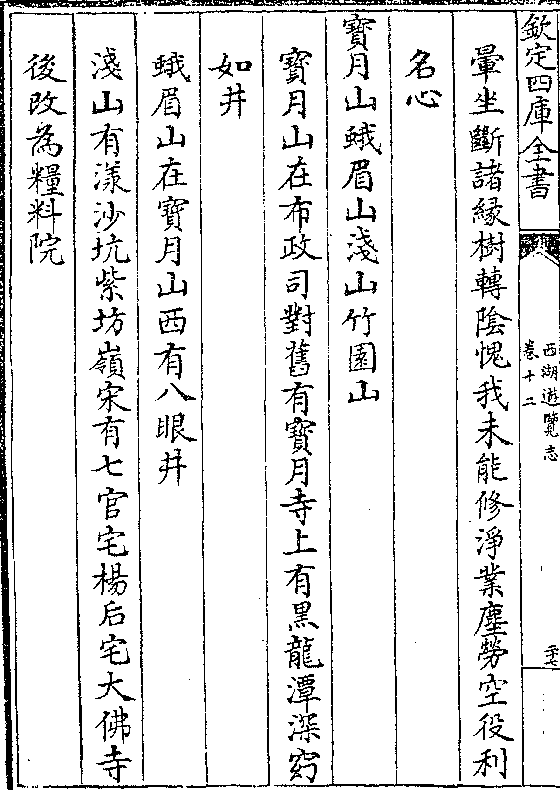 欽定四庫全書
西湖遊覽志
卷十二
暈坐斷諸緣樹轉陰愧我未能修淨業塵勞空役利
名心
寶月山蛾眉山淺山竹園山
寶月山在布政司對舊有寶月寺上有黑龍潭深窈
如井
蛾眉山在寶月山西有八眼井
淺山有漾沙坑紫坊嶺宋有七官宅楊后宅大佛寺
後改為糧料院